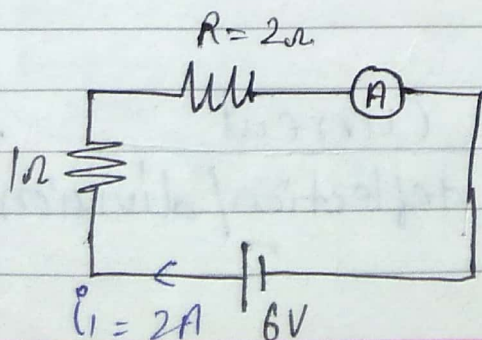 R = 2Ω
A
1Ω
i₁ = 2A
6V